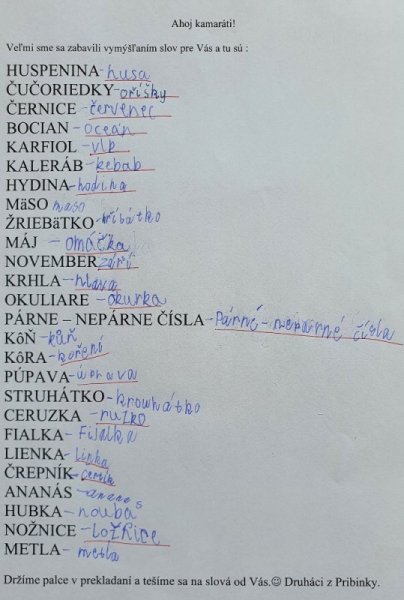 Ahoj kamaráti!
Veľmi sme sa zabavili vymýšľaním slov pre Vás a tu sú :
HUSPENINA - husa
ČUČORIEDKY - oříšky
ČERNICE - červenec
BOCIAN - oceán
KARFIOL - vlk
KALERÁB - kebab
HYDINA - hodina
MäSO maso
ŽRIEBäTKO - hříbátko
MÁJ - omáčka
NOVEMBER září
KRHLA - hlava
OKULIARE - okurka
PÁRNE – NEPÁRNE ČÍSLA - Párné - nepárné čísla
KôŇ - kůň
KôRA - koření
PÚPAVA - úprava
STRUHÁTKO - krouhátko
CERUZKA - ružko
FIALKA - Fijalka
LIENKA - linka
ČREPNÍK -
ANANÁS - ananas
HUBKA - houba
NOŽNICE - LOŽŇICE
METLA - metla
Držíme palce v prekladaní a tešíme sa na slová od Vás.☺ Druháci z Pribinky.